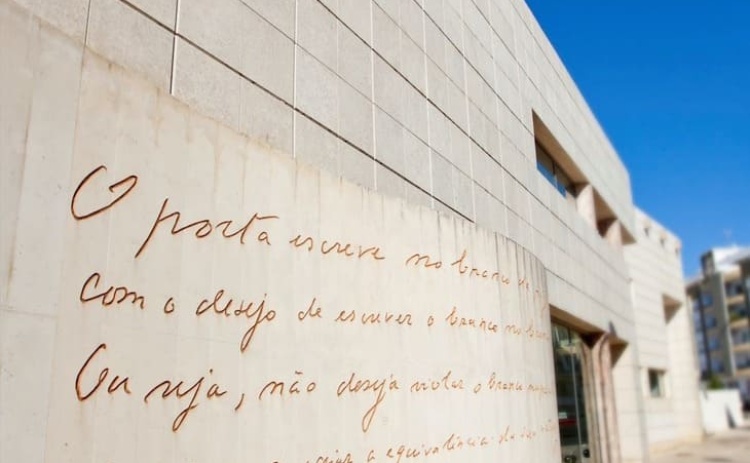 O poeta escreve no branco da
com o desejo de escrever o branco no branco
Ou seja, não deseja violar o branco
a equivalência da